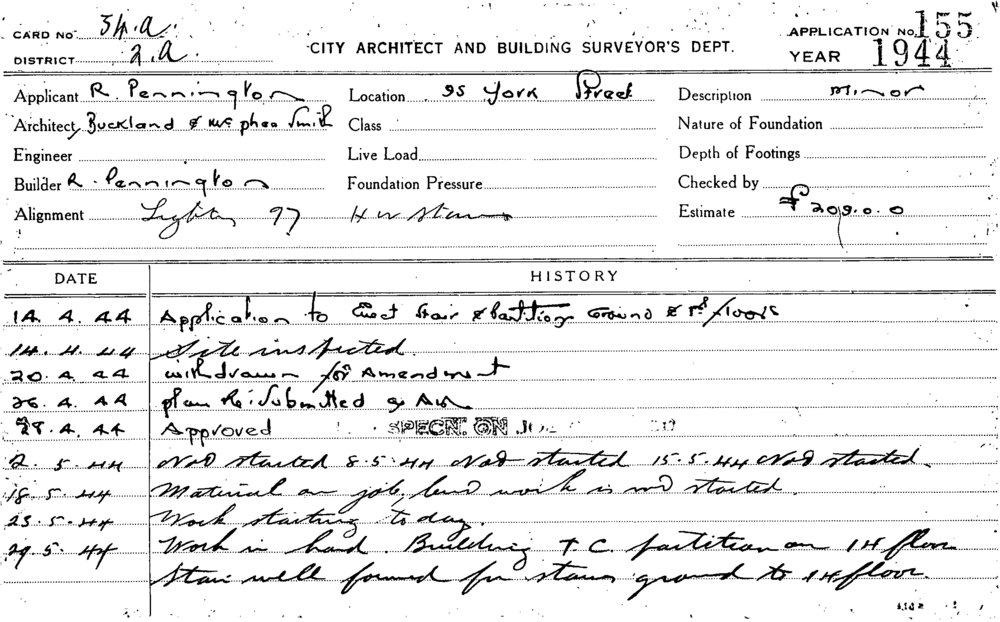 CARD No 34.a.
DISTRICT 2.a
CITY ARCHITECT AND BUILDING SURVEYOR'S DEPT.
APPLICATION No. 155
YEAR 1944
Applicant R. Pennington
Location 95 York Street
Description Minor
Architect, Buckland & McPhee Smith
Class
Nature of Foundation
Engineer
Live Load
Depth of Footings
Builder R. Pennington
Foundation Pressure
Checked by
Alignment 97
Estimate £ 209.0.0
DATE
HISTORY
14. 4. 44 Application to Erect Stair & Partitions Ground & 1st floors
14. 4. 44 Site inspected.
20. 4. 44 withdrawn for Amendment
26. 4. 44 plan Re-Submitted
28. 4. 44 Approved SPECN. ON JOB
2. 5. 44 Not started 8.5.44 Not started 15.5.44 Not started.
18. 5. 44 Material on job, but work is not started.
23. 5. 44 Work starting today.
29. 5. 44 Work in hand. Building T.C. partition on 1st floor
Stair well formed for stairs ground to 1st floor.